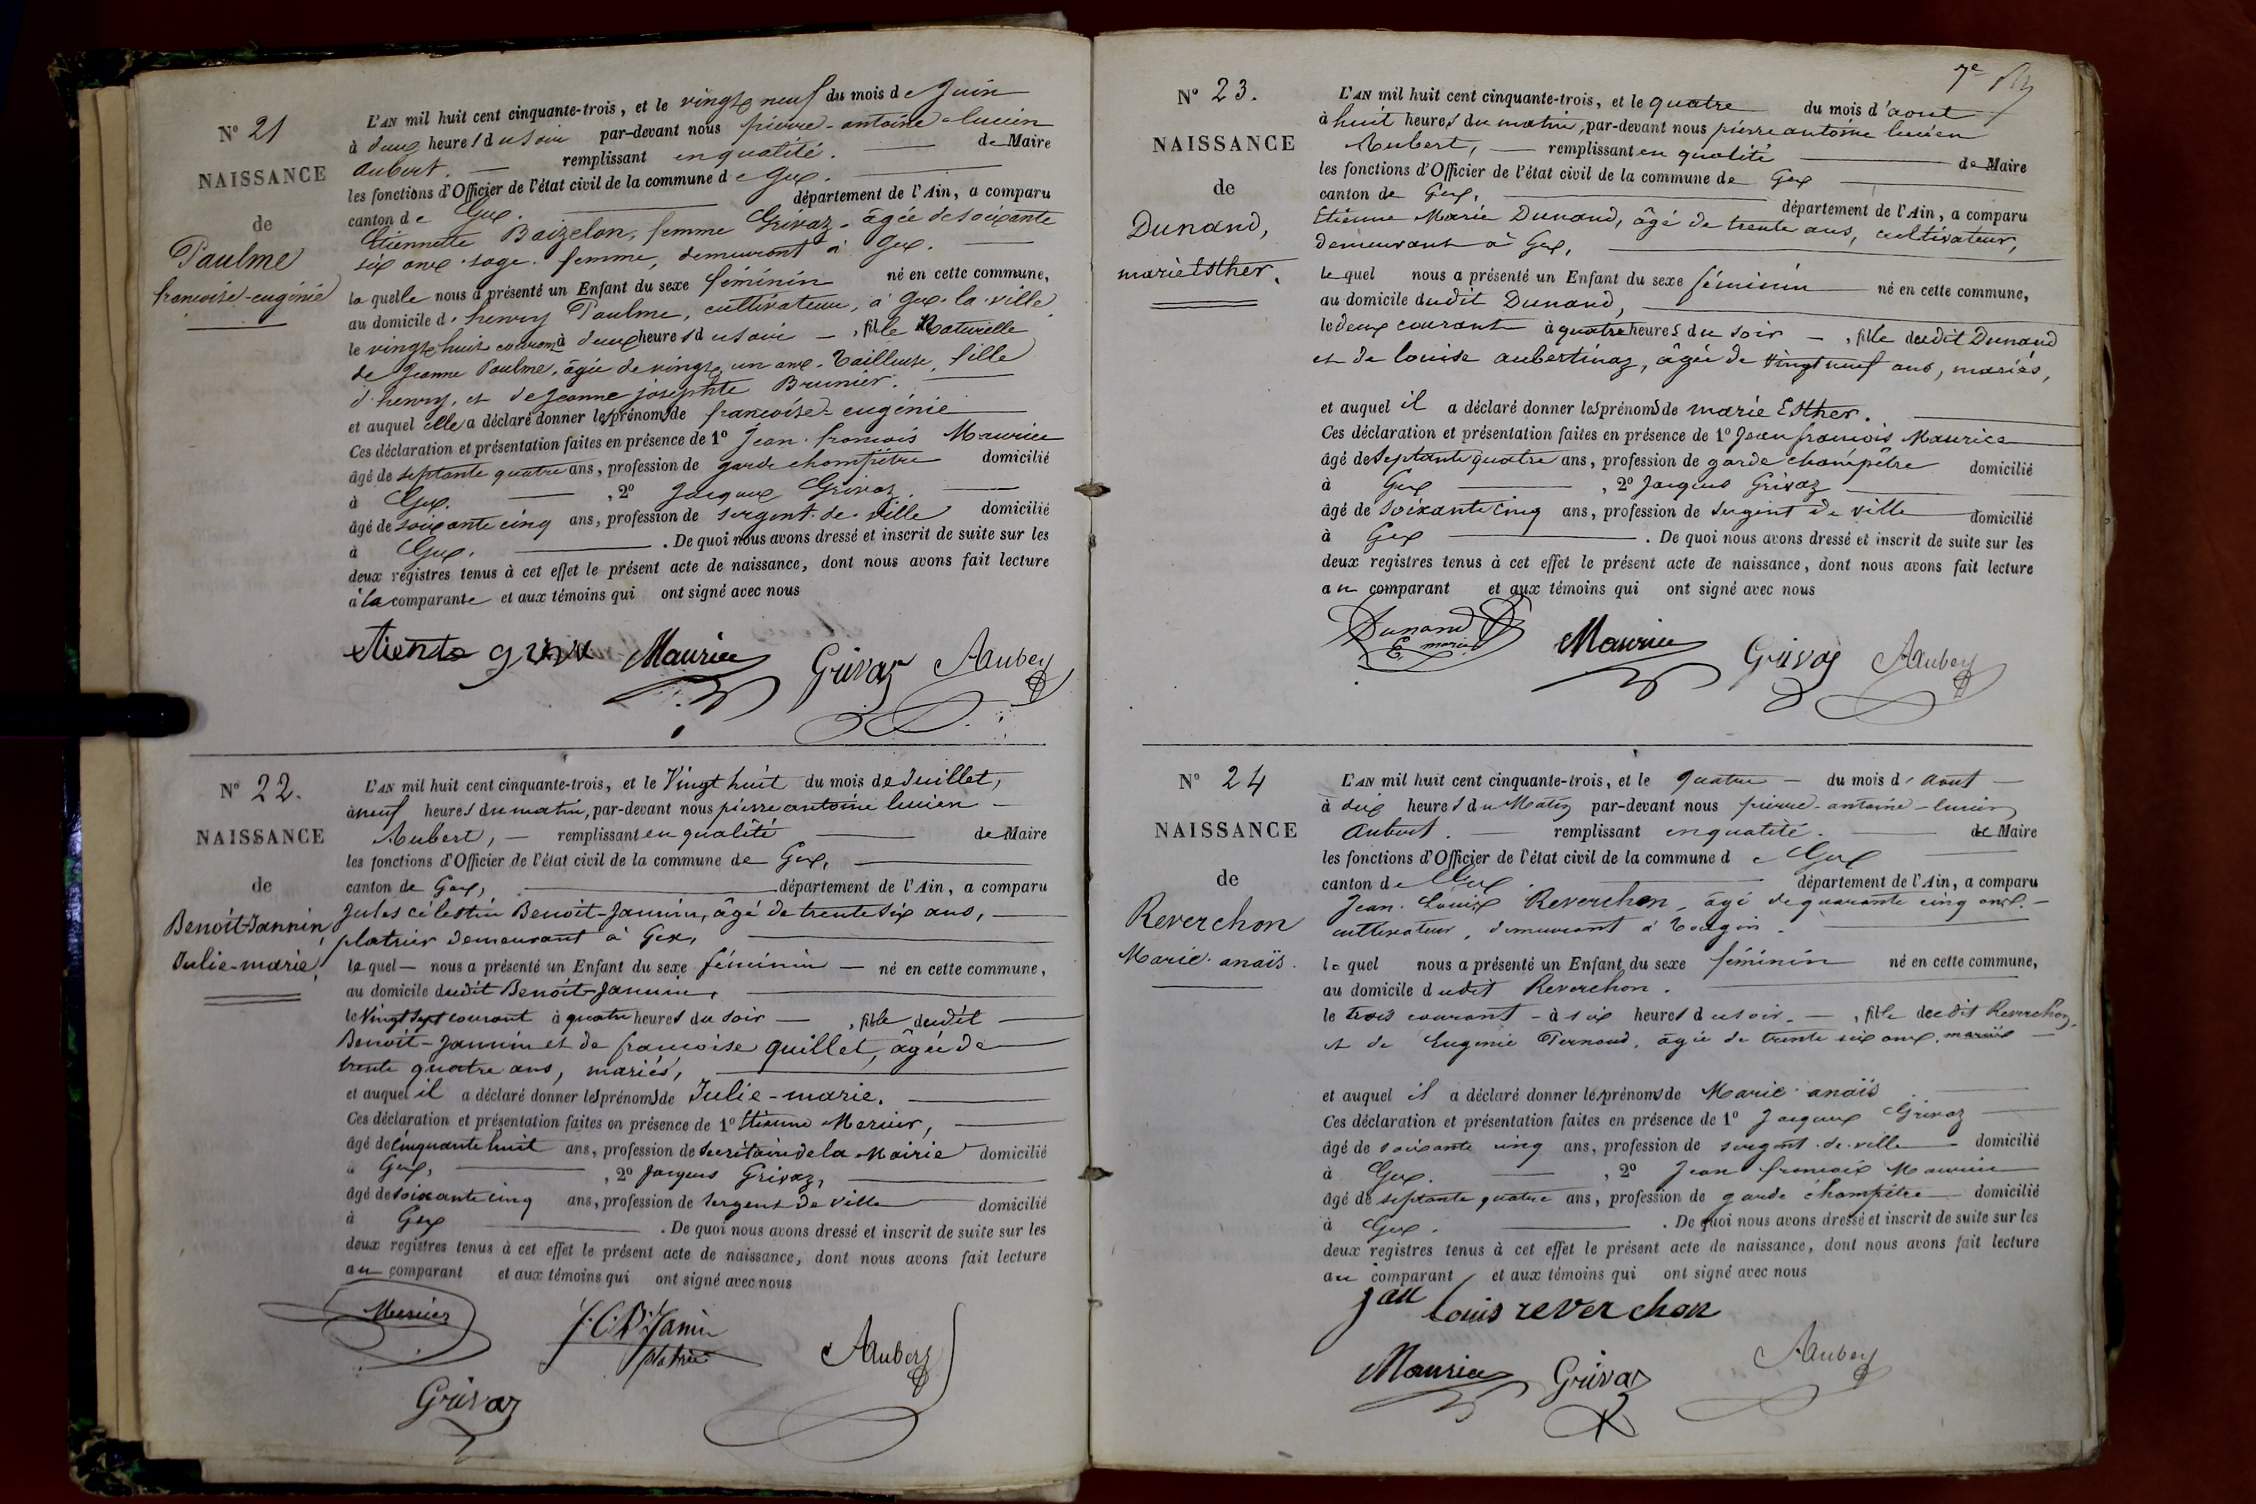 N° 21
NAISSANCE
de
Paulme
francoise-eugénie
L'AN mil huit cent cinquante-trois, et le vingt neuf du mois de Juin
à deux heures du soir par-devant nous pierre-antoine-lucien
Aubert. remplissant en qualité. de Maire
les fonctions d'Officier de l'état civil de la commune de Gex.
canton de Gex. département de l'Ain, a comparu
Etiennette Baizelon, femme Grivaz. âgée de soixante
six ans. sage. femme, demeurant à Gex.
la quelle nous a présenté un Enfant du sexe féminin né en cette commune,
au domicile d'henry Paulme, cultivateur, à Gex. la ville
le vingt huit courant à deux heures du soir, fille Naturelle
de Jeanne Paulme, âgée de vingt un ans. Tailleuse, fille
d'henry, et de Jeanne josephte Brunier.
et auquel elle a déclaré donner les prénoms de francoise-eugénie
Ces déclaration et présentation faites en présence de 1° Jean. francois Maurice
âgé de septante quatre ans, profession de garde champêtre domicilié
à Gex. , 2° Jacques Grivaz.
âgé de soixante cinq ans, profession de sergent. de. ville domicilié
à Gex. . De quoi nous avons dressé et inscrit de suite sur les
deux registres tenus à cet effet le présent acte de naissance, dont nous avons fait lecture
à la comparante et aux témoins qui ont signé avec nous
Maurice Grivaz Aubert
N° 22.
NAISSANCE
de
Benoit-Jannin,
Julie-marie,
L'AN mil huit cent cinquante-trois, et le Vingt huit du mois de Juillet,
à neuf heures du matin, par-devant nous pierre antoine lucien
Aubert, remplissant en qualité de Maire
les fonctions d'Officier de l'état civil de la commune de Gex,
canton de Gex, département de l'Ain, a comparu
Jules célestin Benoit-Jannin, âgé de trente six ans,
platrier demeurant à Gex,
le quel nous a présenté un Enfant du sexe féminin né en cette commune,
au domicile dudit Benoit-Jannin,
le Vingt sept courant à quatre heures du soir, fille dudit
Benoit-Jannin et de francoise quillet, âgée de
trente quatre ans, mariés,
et auquel il a déclaré donner les prénoms de Julie-marie.
Ces déclaration et présentation faites en présence de 1° Etienne Mercier,
âgé de cinquante huit ans, profession de Secrétaire de la Mairie domicilié
à Gex, , 2° Jacques Grivaz,
âgé de soixante cinq ans, profession de Sergent de Ville domicilié
à Gex . De quoi nous avons dressé et inscrit de suite sur les
deux registres tenus à cet effet le présent acte de naissance, dont nous avons fait lecture
au comparant et aux témoins qui ont signé avec nous
Mercier J. C. B. Janin Aubert
platrier
Grivaz
7e
N° 23.
NAISSANCE
de
Dunand,
marie Esther.
L'AN mil huit cent cinquante-trois, et le quatre du mois d'aout
à huit heures du matin, par-devant nous pierre antoine lucien
Aubert, remplissant en qualité de Maire
les fonctions d'Officier de l'état civil de la commune de Gex
canton de Gex, département de l'Ain, a comparu
Etienne Marie Dunand, âgé de trente ans, cultivateur,
demeurant à Gex,
le quel nous a présenté un Enfant du sexe féminin né en cette commune,
au domicile dudit Dunand,
le deux courant à quatre heures du soir, fille dudit Dunand
et de louise aubertinaz, âgée de Vingt neuf ans, mariés,
et auquel il a déclaré donner les prénoms de marie Esther.
Ces déclaration et présentation faites en présence de 1° Jean francois Maurice
âgé de Septante quatre ans, profession de garde champêtre domicilié
à Gex , 2° Jacques Grivaz
âgé de Soixante Cinq ans, profession de Sergent de ville domicilié
à Gex . De quoi nous avons dressé et inscrit de suite sur les
deux registres tenus à cet effet le présent acte de naissance, dont nous avons fait lecture
au comparant et aux témoins qui ont signé avec nous
Dunand
E. marie Maurice Grivaz Aubert
N° 24
NAISSANCE
de
Reverchon
Marie. anaïs.
L'AN mil huit cent cinquante-trois, et le quatre du mois d'Aout
à dix heures du Matin par-devant nous pierre-antoine-lucien
Aubert. remplissant en qualité. de Maire
les fonctions d'Officier de l'état civil de la commune de Gex
canton de Gex. département de l'Ain, a comparu
Jean. Louis Reverchon, âgé de quarante cinq ans.
cultivateur, demeurant à Tougin.
le quel nous a présenté un Enfant du sexe féminin né en cette commune,
au domicile dudit Reverchon.
le trois courant à six heures du soir. , fille dudit Reverchon,
et de Eugenie Pernoud, âgée de trente six ans, mariés
et auquel il a déclaré donner les prénoms de Marie. anaïs
Ces déclaration et présentation faites en présence de 1° Jacques Grivaz
âgé de soixante cinq ans, profession de sergent. de. ville domicilié
à Gex. , 2° Jean francois Maurice
âgé de septante quatre ans, profession de garde champêtre domicilié
à Gex. . De quoi nous avons dressé et inscrit de suite sur les
deux registres tenus à cet effet le présent acte de naissance, dont nous avons fait lecture
au comparant et aux témoins qui ont signé avec nous
jean louis reverchon
Maurice Grivaz Aubert